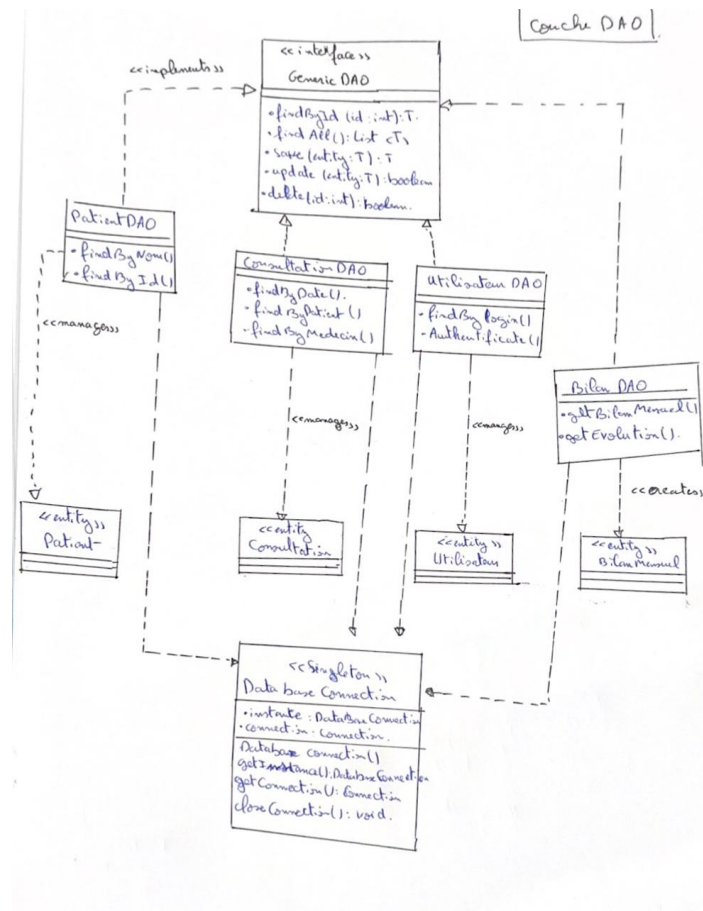 Couche DAO
<<interface>>
Generic DAO
• findById (id : int) : T.
• find All() : List <T>
• save (entity : T) : T
• update (entity : T) : boolean
• delete (id : int) : boolean.
<<implements>>
Patient DAO
• findByNom()
• findById()
Consultation DAO
• findByDate().
• findByPatient()
• findByMedecin()
Utilisateur DAO
• findBylogin()
• Authentificate()
Bilan DAO
• getBilanMensuel()
• getEvolution().
<<manages>>
<<manages>>
<<manages>>
<<creates>>
<<entity>>
Patient
<<entity
Consultation
<<entity>>
Utilisateur
<<entity>>
BilanMensuel
<<Singleton>>
Database Connection
• instance : DataBase Connection
• connection : Connection.
Database connection()
getInstance() : Database Connection
getConnection() : Connection
closeConnection() : void.